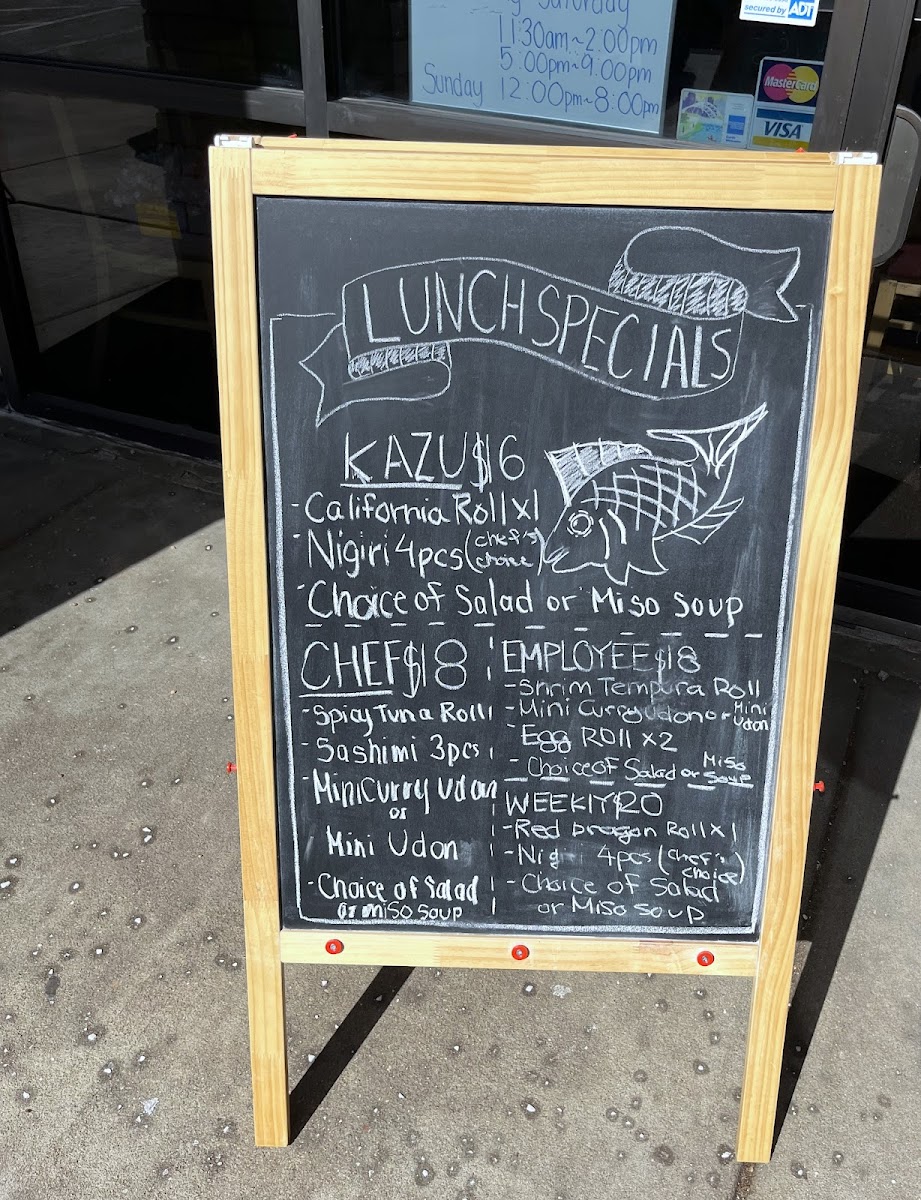 Saturday
11:30am~2:00pm
5:00pm~9:00pm
Sunday 12:00pm~8:00pm
secured by ADT
MasterCard
VISA
LUNCH SPECIALS
KAZU $16
- California Roll x1
- Nigiri 4pcs (chef's choice)
- Choice of Salad or Miso Soup
CHEF $18
- Spicy Tuna Roll
- Sashimi 3pcs
- Mini Curry Udon
or
Mini Udon
- Choice of Salad
or miso soup
EMPLOYEE $18
- Shrim Tempura Roll
- Mini Curry udon or Mini Udon
- Egg Roll x2
- Choice of Salad or Miso Soup
WEEKLY $20
- Red Dragon Roll x1
- Nigiri 4pcs (chef's choice)
- Choice of Salad
or Miso Soup